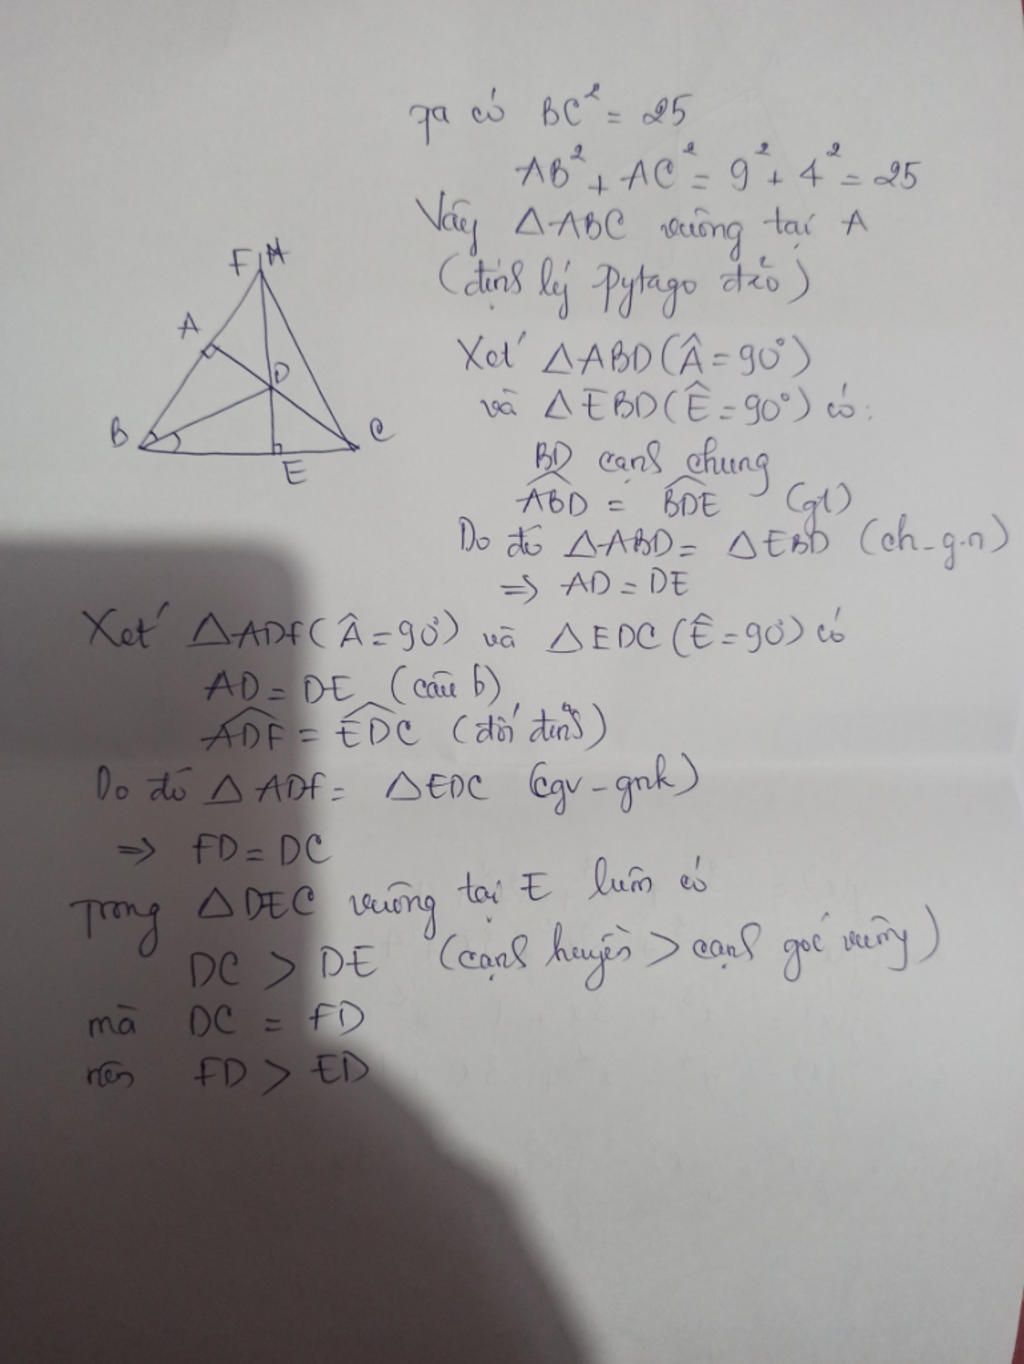 Ta có BC² = 25
AB² + AC² = 9² + 4² = 25
Vậy △ABC vuông tại A
(định lý Pytago đảo)
F H
A
D
B
C
E
Xét △ABD (Â = 90°)
và △EBD (Ê = 90°) có:
BD cạnh chung
ABD = BDE (gt)
Do đó △ABD = △EBD (ch-g.n)
=> AD = DE
Xét △ADF (Â = 90°) và △EDC (Ê = 90°) có
AD = DE (câu b)
ADF = EDC (đối đỉnh)
Do đó △ADF = △EDC (cgv - gnk)
=> FD = DC
Trong △DEC vuông tại E luôn có
DC > DE (cạnh huyền > cạnh góc vuông)
mà DC = FD
nên FD > ED